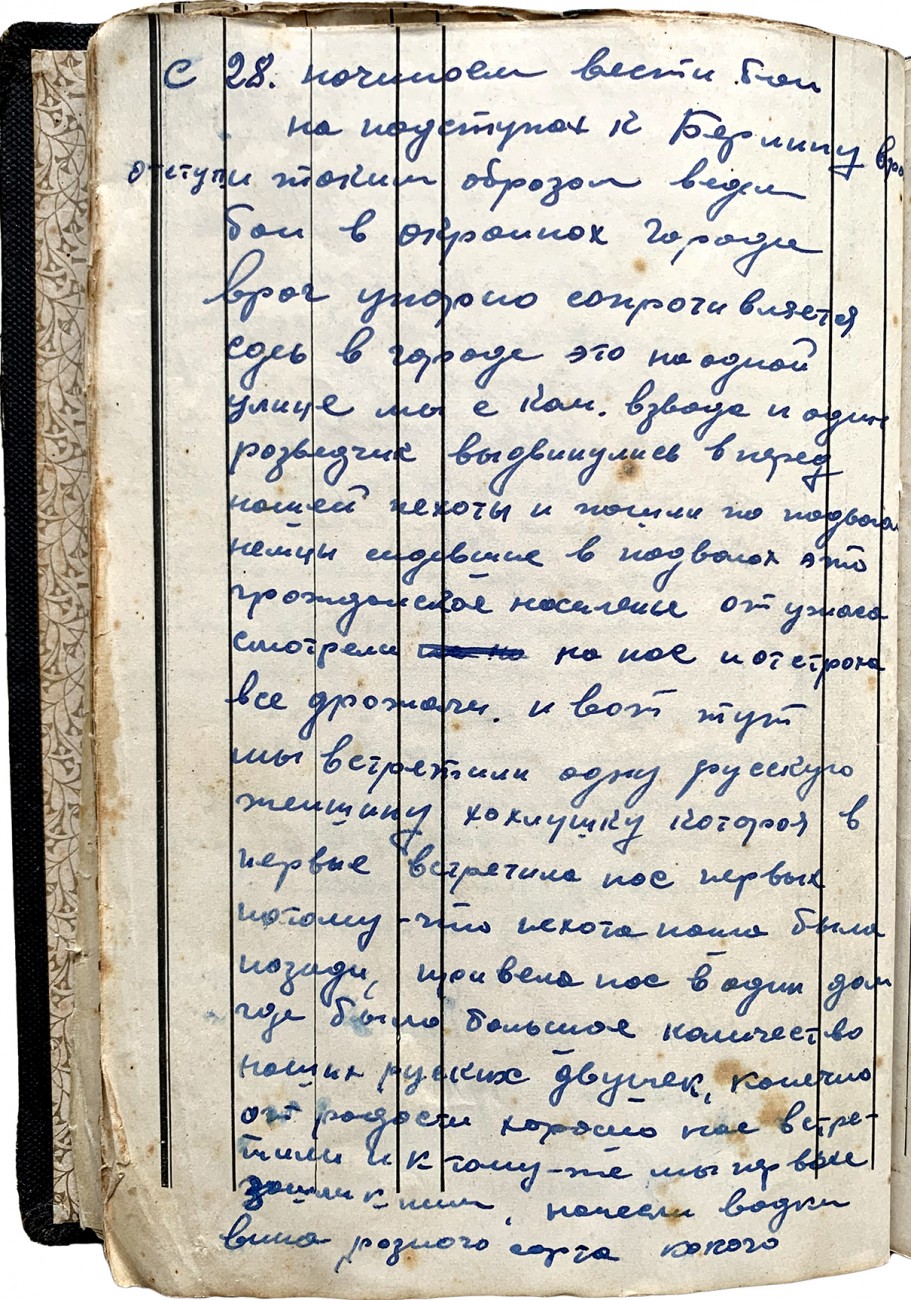 с 28. начинаем вести бои
на подступах к Берлину вра
отступи таким образом ведем
бои в окраинах города
враг упорно сопротивляется
сдеь в городе это на одной
улице мы с ком. взвода и один
розведчик выдвинулись вперед
нашей пехоты и пошли по подвалам
немцы сидевшие в подволах это
грожданское населенье от ужаса
смотрели на нас и от строха
все дрожали. и вот тут
мы встретили одну русскую
женщину хохлушку которая в
первые встретила нас первых
потому-что пехота наша была
позади, привела нас в один дом
где было большое количество
наших руских двушек, конечно
от радости хорошо нас встре-
тили и к тому-же мы первые
зашли к ним, нанесли водки
вина розного сорта какого